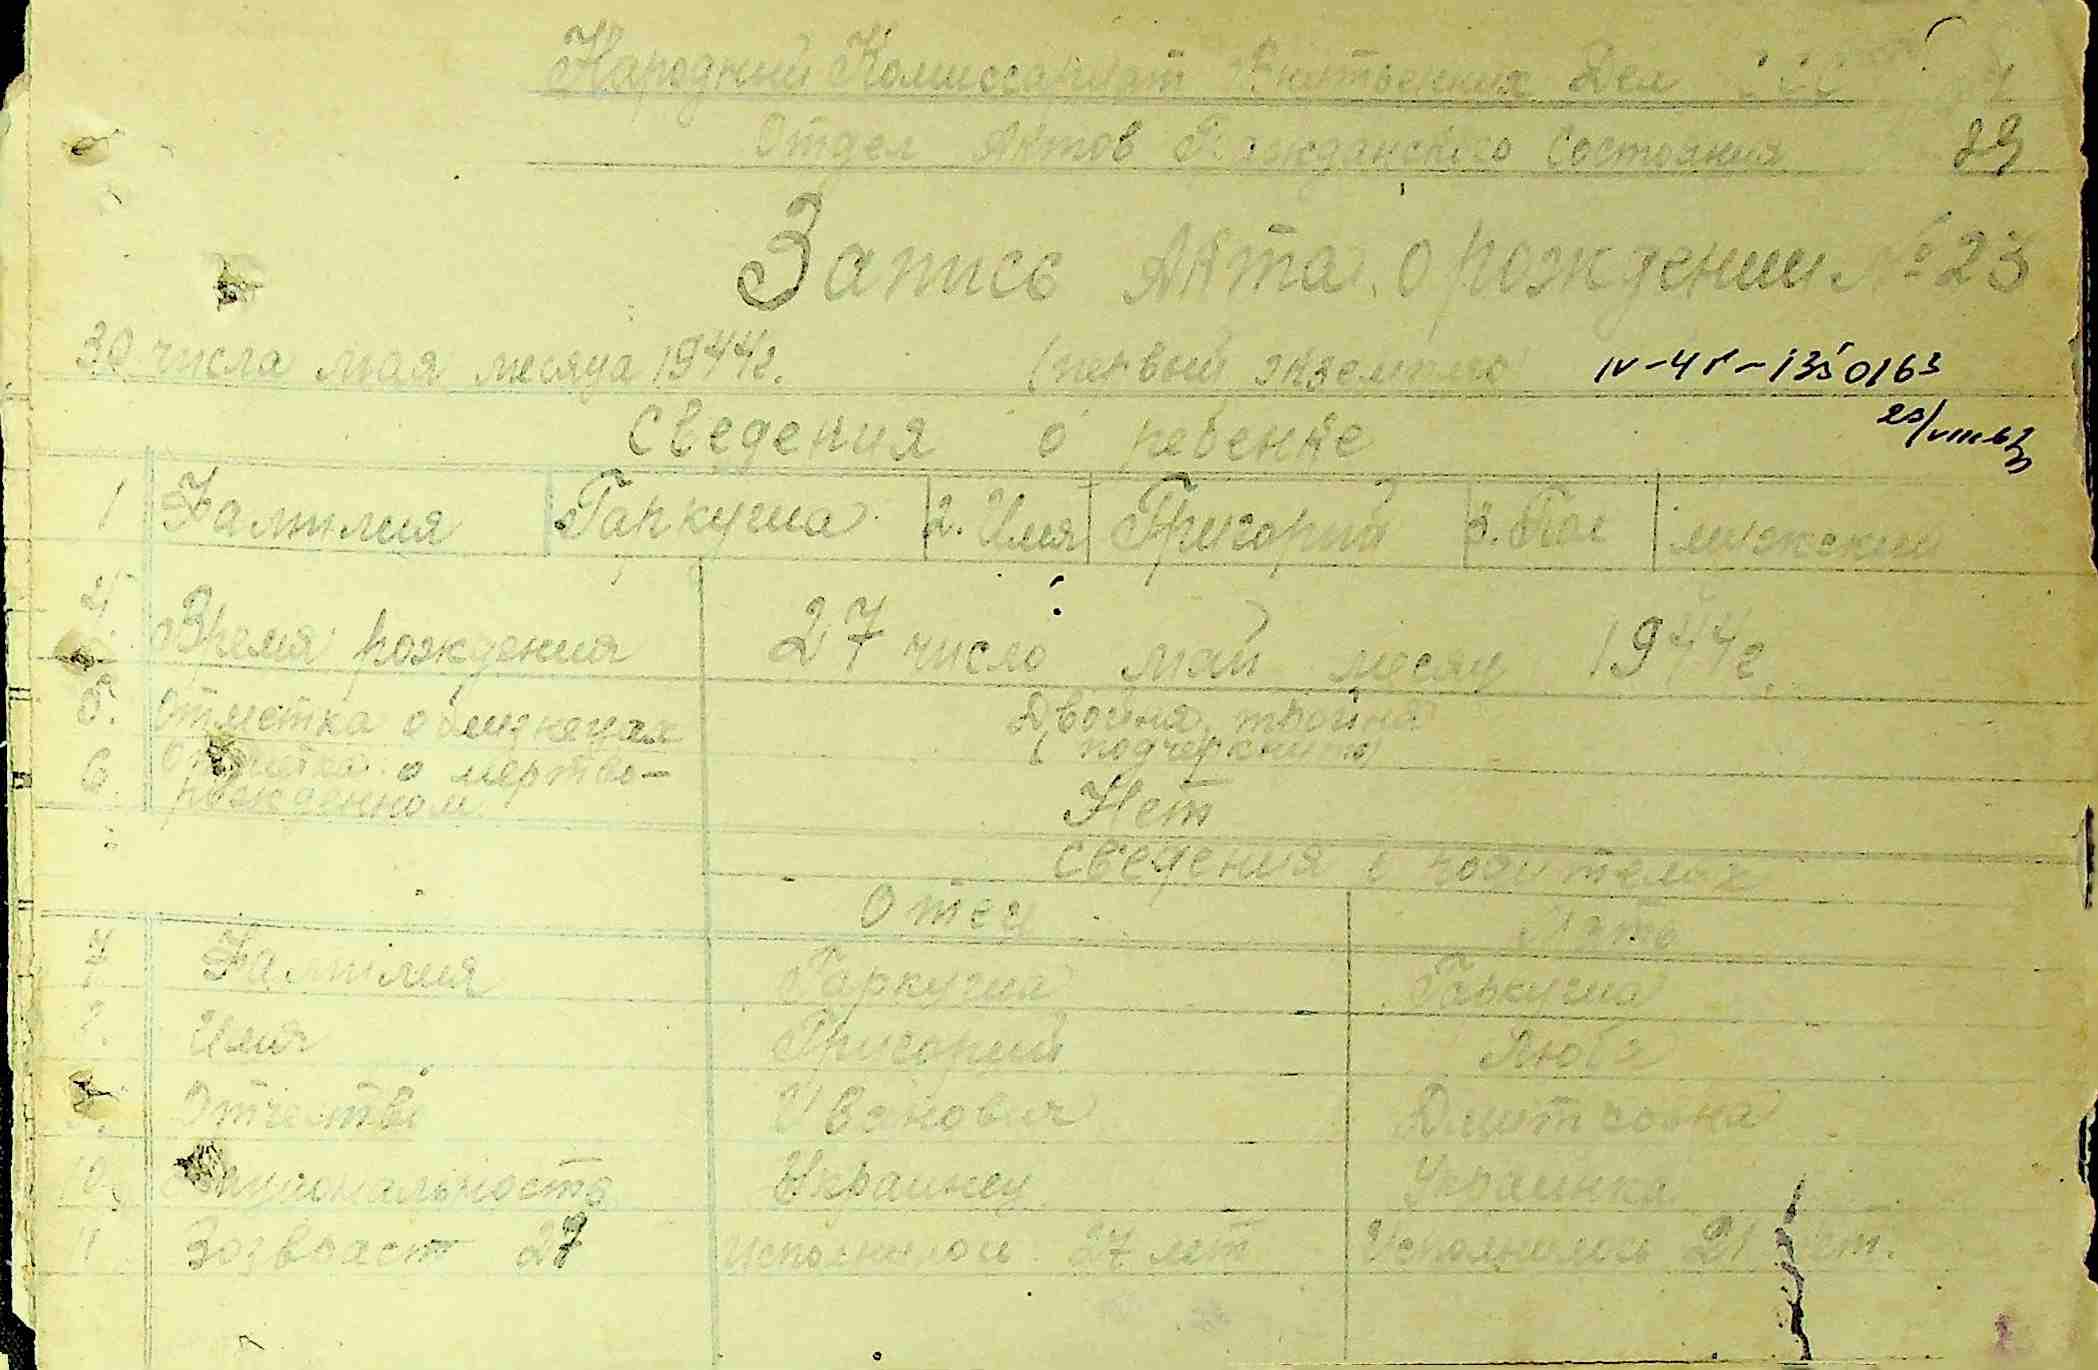 Народный Комиссариат Внутренних Дел
Отдел Актов Гражданского Состояния 29
Запись Акта о рождении № 23
30 числа мая месяца 1944г. (первый экземпляр)
Сведения о ребенке
1 Фамилия Гаркуша 2. Имя Григорий 3. Пол мужский
4 Время рождения 27 число май месяц 1944г.
5. Отметка о близнецах Двойня, тройня
(подчеркнуто)
6 Отметка о мертво-
рожденном Нет
Сведения о родителях
Отец Мать
7 Фамилия Гаркуша Гаркуша
8. Имя Григорий Люба
9. Отчество Иванович Дмитровна
10. Национальность Украинец Украинка
11 Возраст 27 Исполнилось 27 лет Исполнилось 21 лет.